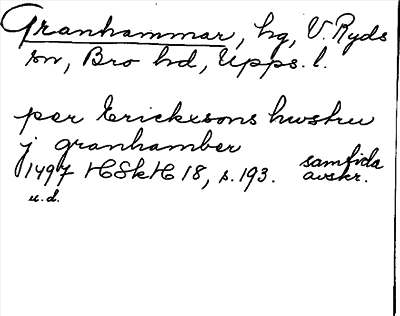 Granhammar, hg, V. Ryds
sn, Bro hd, Upps. l.
per Ericksons hwstru
j granhamber
1497 HSkH 18, s. 193. samtida avskr.
u. d.